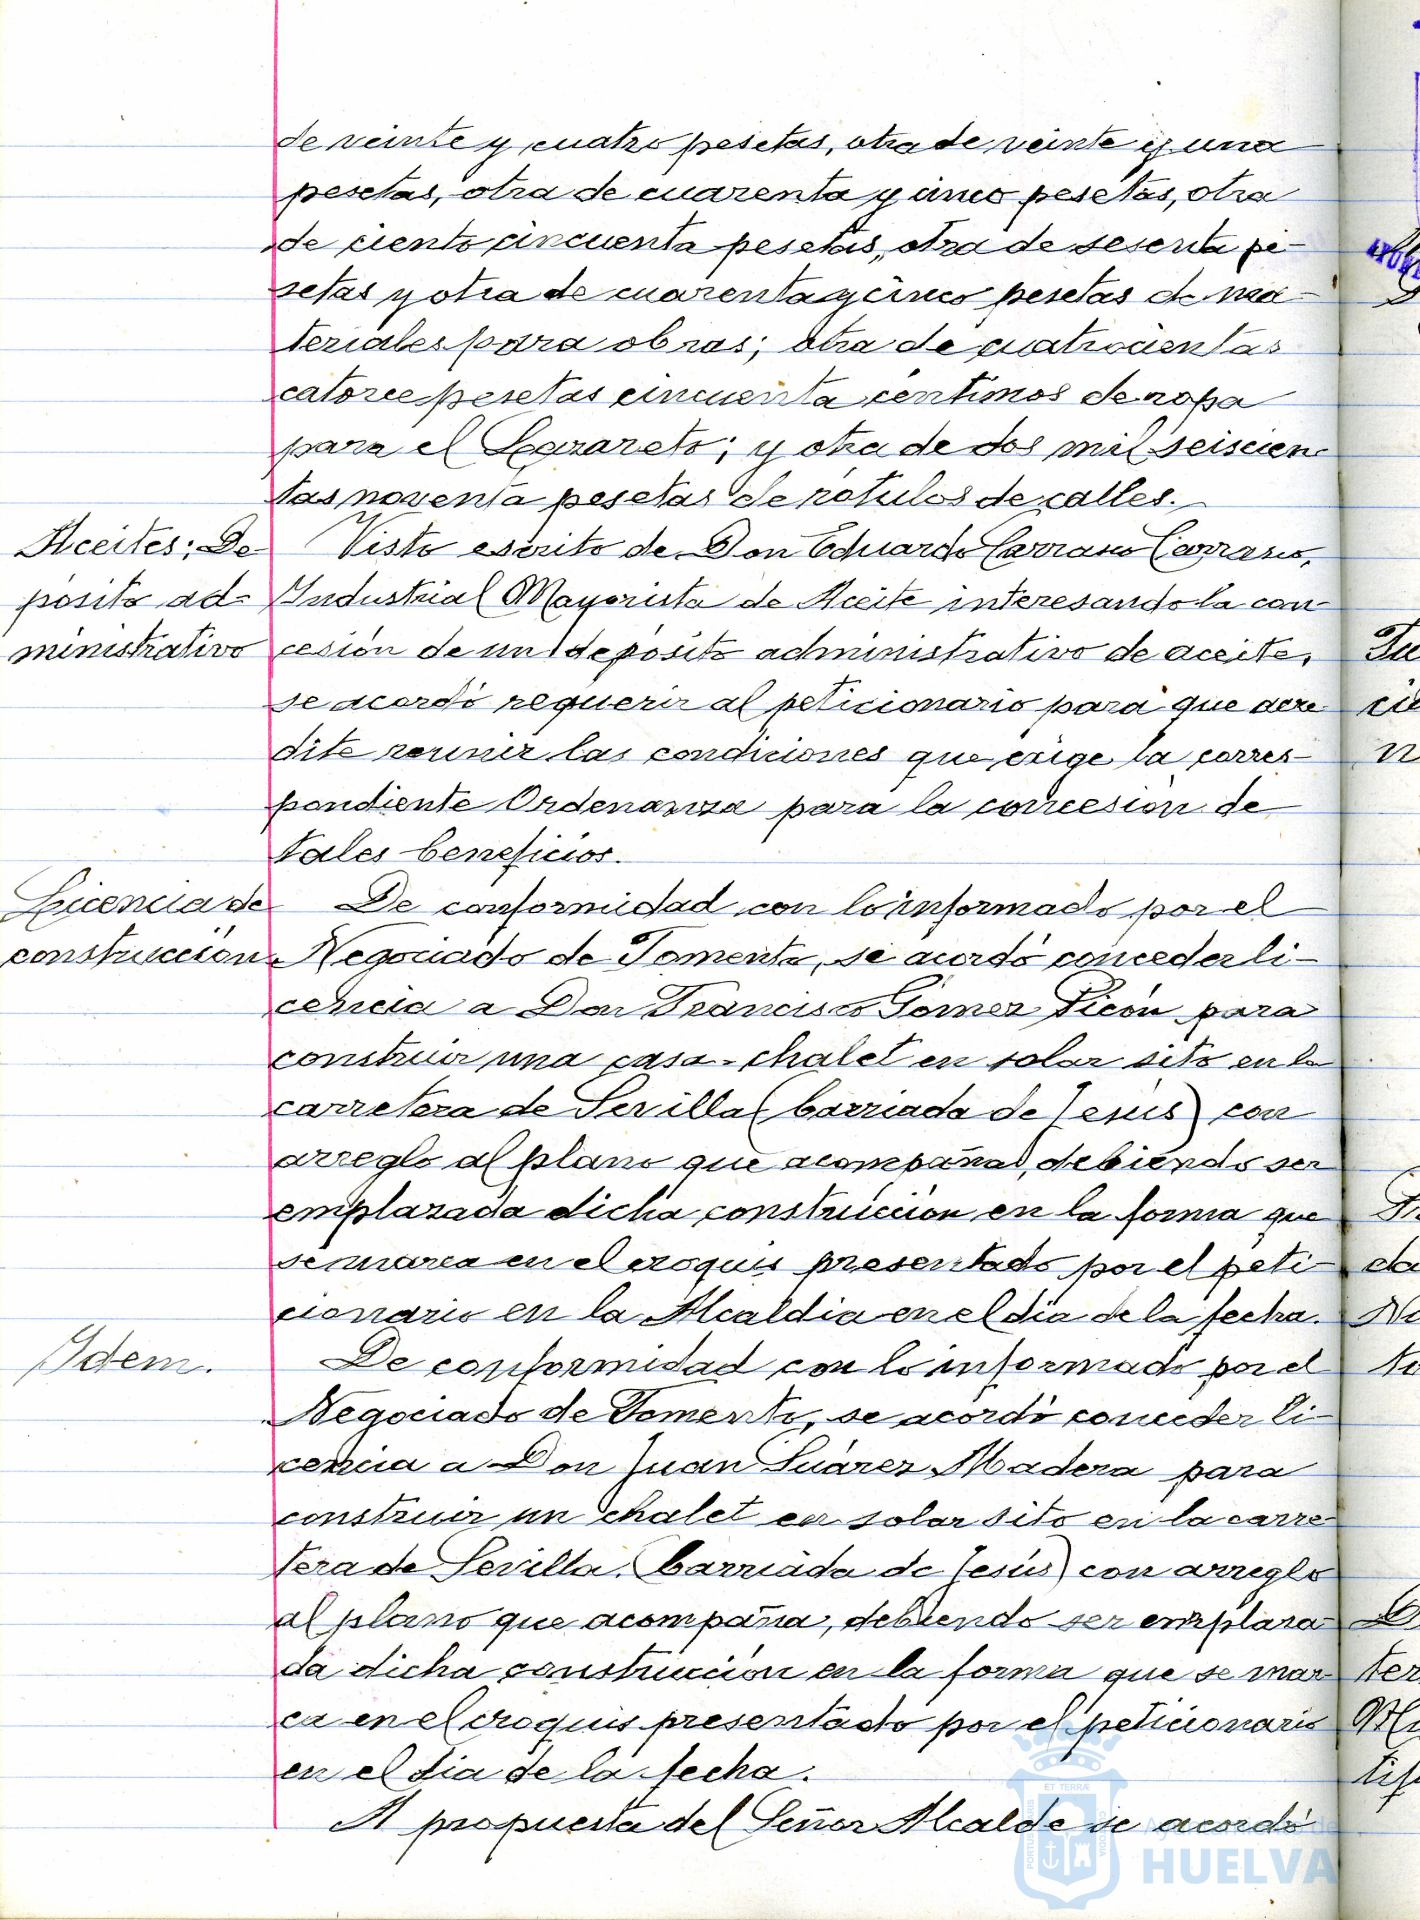 de veinte y cuatro pesetas, otra de veinte y una
pesetas, otra de cuarenta y cinco pesetas, otra
de ciento cincuenta pesetas, otra de sesenta pe-
setas y otra de cuarenta y cinco pesetas de ma-
teriales para obras; otra de cuatrocientas
catorce pesetas cincuenta céntimos de ropa
para el Lazareto; y otra de dos mil seiscien-
tas noventa pesetas de rótulos de calles.
Aceites: De-
pósito ad-
ministrativo
Visto escrito de Don Eduardo Carrasco Carrasco,
Industrial Mayorista de Aceite interesando la con-
cesión de un depósito administrativo de aceite,
se acordó requerir al peticionario para que acre-
dite reunir las condiciones que exige la corres-
pondiente Ordenanza para la concesión de
tales beneficios.
Licencia de
construcción
De conformidad con lo informado por el
Negociado de Fomento, se acordó conceder li-
cencia a Don Francisco Gómez Picón para
construir una casa-chalet en solar sito en la
carretera de Sevilla (barriada de Jesús) con
arreglo al plano que acompaña, debiendo ser
emplazada dicha construcción en la forma que
se marca en el croquis presentado por el peti-
cionario en la Alcaldía en el día de la fecha.
Idem.
De conformidad con lo informado por el
Negociado de Fomento, se acordó conceder li-
cencia a Don Juan Suárez Madera para
construir un chalet en solar sito en la carre-
tera de Sevilla. (barriada de Jesús) con arreglo
al plano que acompaña, debiendo ser emplaza-
da dicha construcción en la forma que se mar-
ca en el croquis presentado por el peticionario
en el día de la fecha.
A propuesta del Señor Alcalde se acordó
Ayuntamiento de
HUELVA